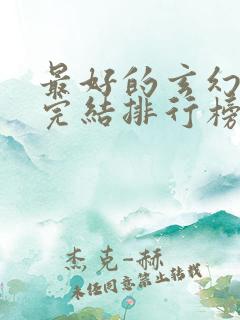 最好的玄幻
完結排行榜
杰克-赫
未经同意禁止转载